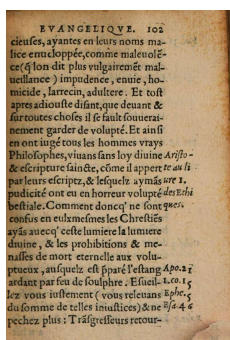 EVANGELIQVE. 102
cieuses, ayantes en leurs noms ma-
lice enucloppée, comme maleuolē-
ce (q̃ lon dit plus vulgairemēt mal-
ueillance) impudence, enuie, ho-
micide, larrecin, adultere. Et tost
apres adiouste disant, que deuant &
sur toutes choses il se fault souuerai-
nement garder de volupté. Et ainsi
en ont iugé tous les hommes vrays
Philosophes, viuans sans loy diuine Aristo-
& escripture saincte, cōme il appert te au li
par leurs escriptz, & lesquelz aymās ure 1.
pudicité ont eu en horreur volupté des Ethi
bestiale. Comment doncq' ne sont ques.
confus en eulxmesmes les Chrestiēs
ayās auecq' ceste lumiere la lumiere
diuine, & les prohibitions & me-
nasses de mort eternelle aux volu-
ptueux, ausquelz est p̄paré l'estang Apo. 21
ardant par feu de soulphre. Esueil- 1. co. 15
lez vous iustement (vous releuans Ephe. 5
du somme de telles iniustices) & ne Esa. 46
pechez plus: Trāsgresseurs retour-